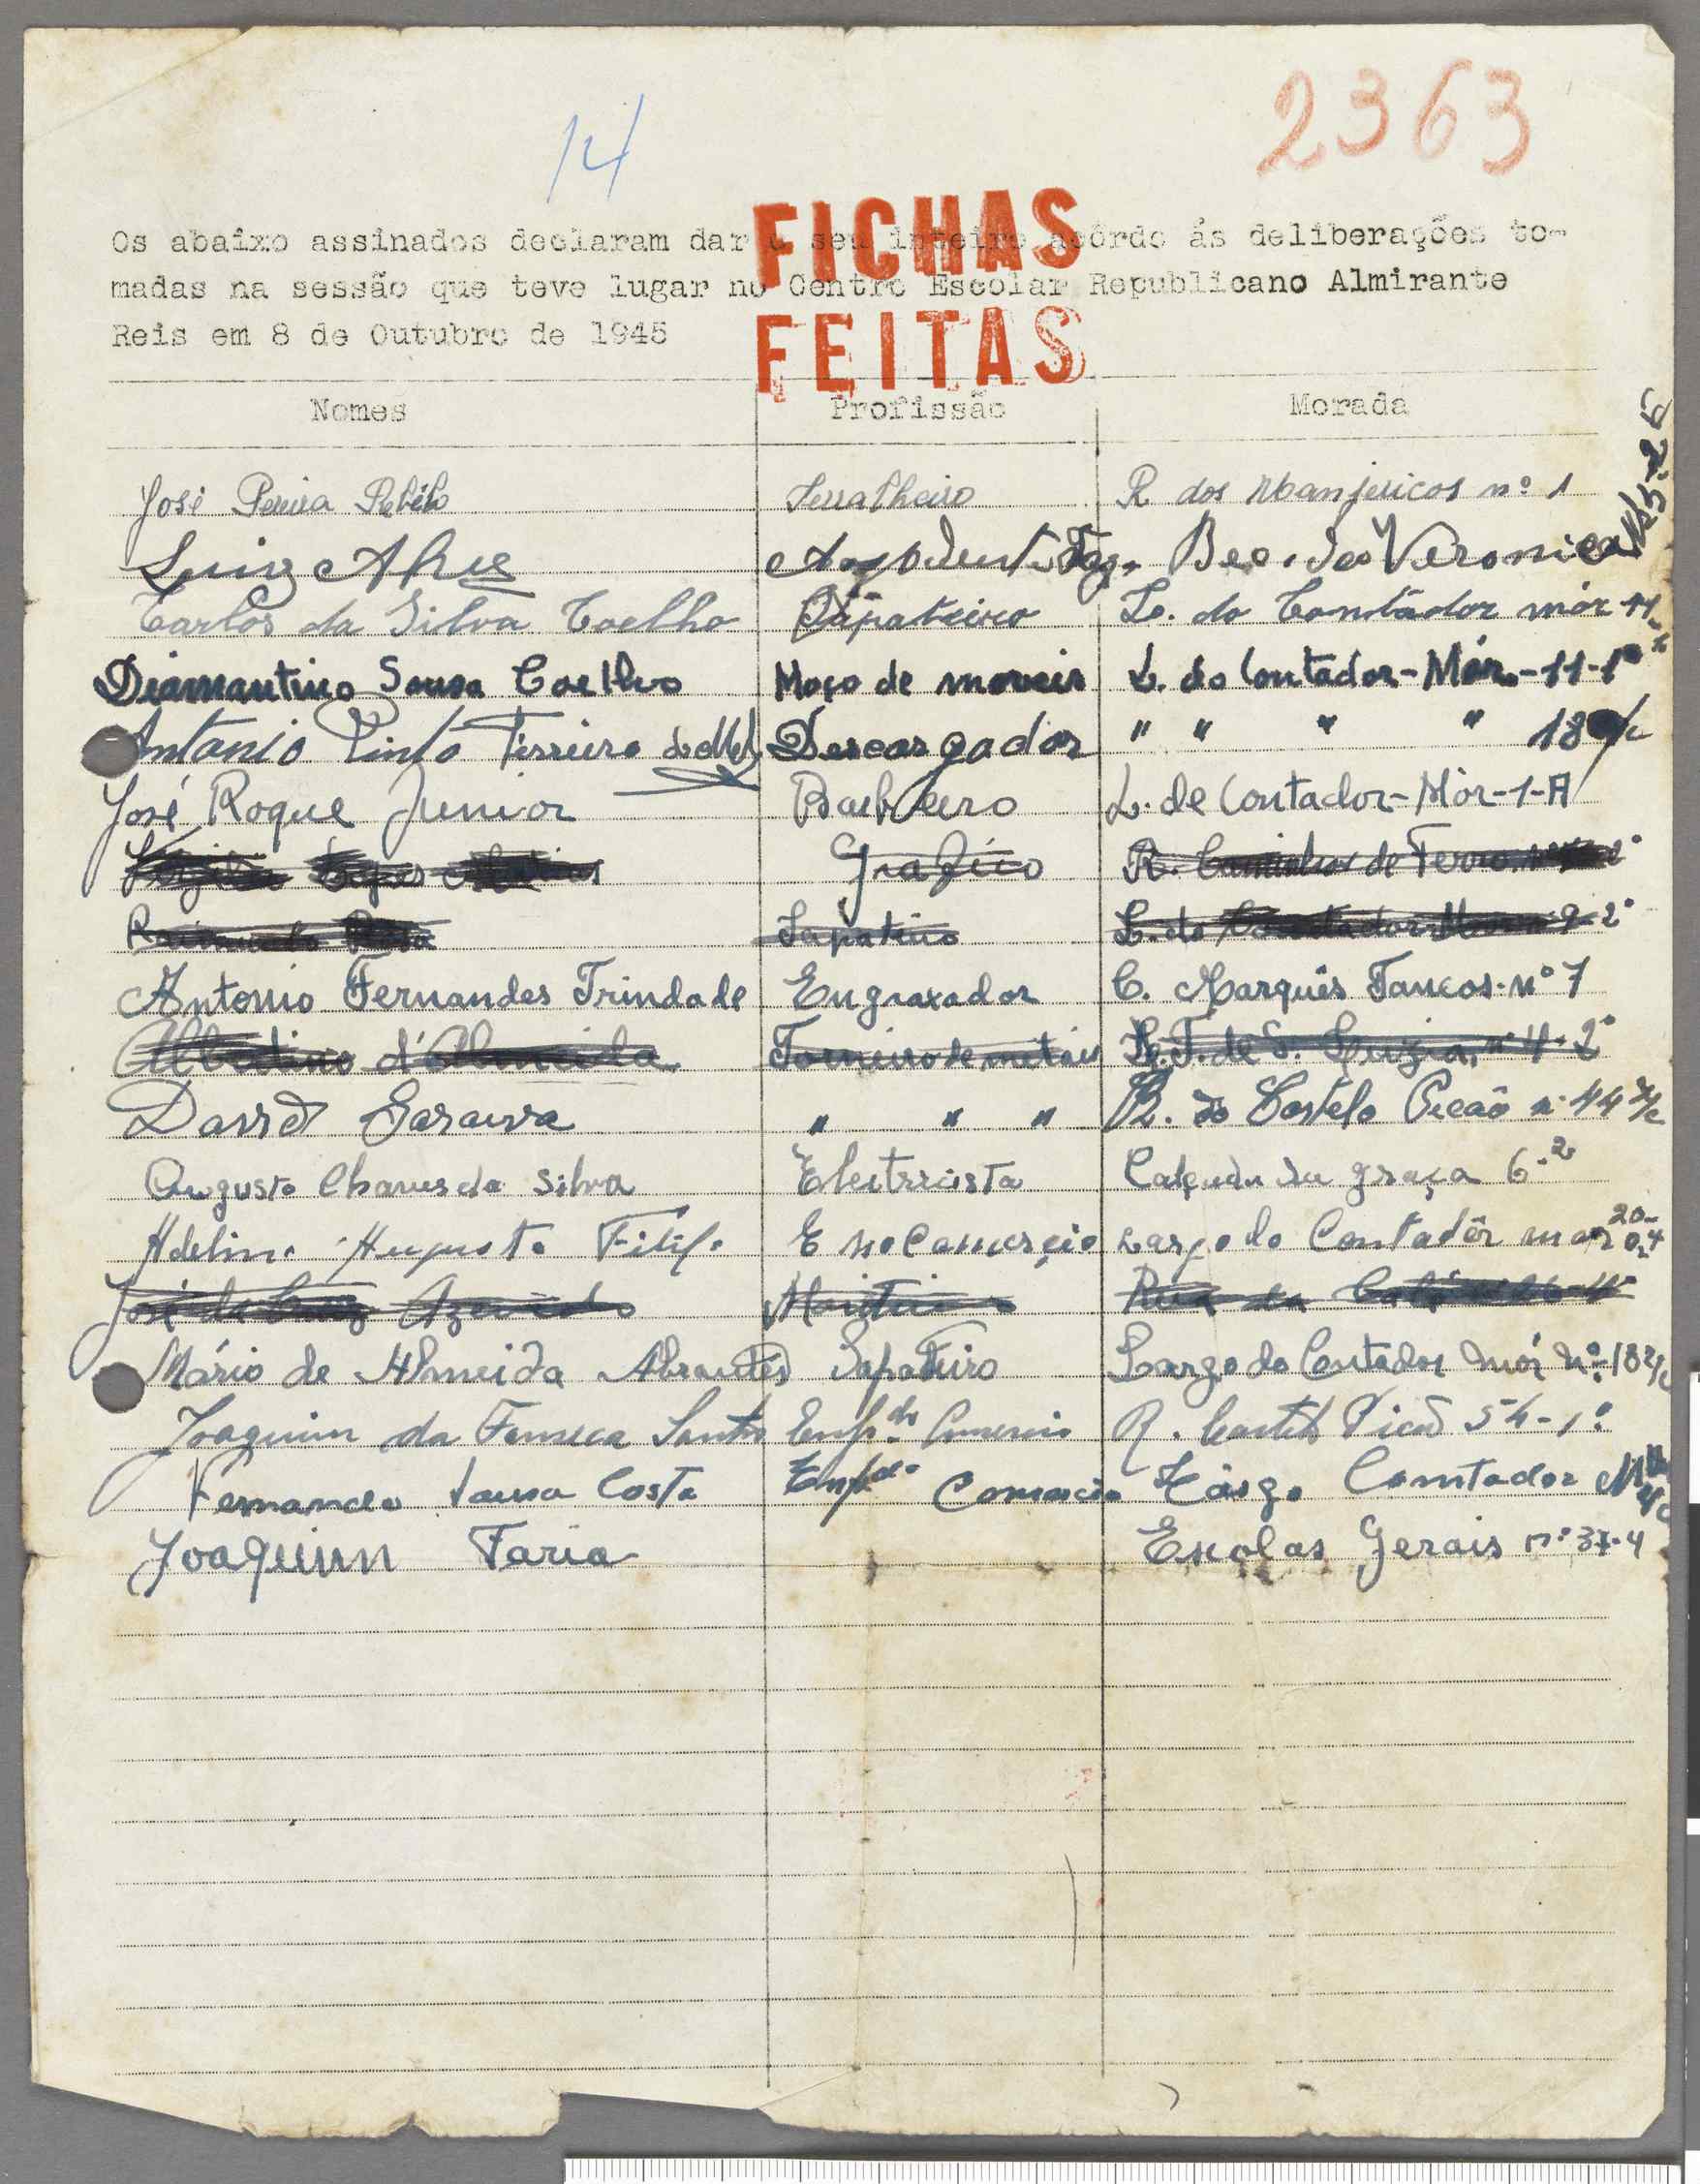 2363
14
FICHAS
FEITAS
Os abaixo assinados declaram dar o seu inteiro acôrdo ás deliberações to-
madas na sessão que teve lugar no Centro Escolar Republicano Almirante
Reis em 8 de Outubro de 1945
Nomes Profissão Morada
José Pereira Serralheiro R dos Manjericos nº 1
Luiz Alves Bec. das Veronicas
Carlos da Silva Coelho Sapateiro L. do Contador mór 11
Diamantino Sousa Coelho Moço de moveis L. do Contador-Mór-11-1º
Antonio Pinto Ferreira Descargador " " " " 18
José Roque Junior Barbeiro L. de Contador-Mòr-1-A
Lopes Grafico R. Caminhos de Ferro
Raimundo Sapateiro L. do Contador Mor 9-2º
Antonio Fernandes Trindade Engraxador C. Marquês Tancos-nº 7
d'Almeida Torneiro de metais de S. Luzia, nº 4-2º
David Saraiva " " " R. do Castelo Picão nº 44
Augusto Chaves da Silva Eletricista Calçada da graça 6-2º
Adelino Augusto Filipe E no Comerçio Largo do Contadôr mor 20-
José da Cruz Azevedo Maritimo Rua da
Mário de Almeida Abrantes Sapateiro Largo do Contador Mór Nº-18
Joaquim da Fonseca Santos Empdo Comercio R. Castelo Picão 54-1º
Fernando Sousa Costa Empdo Comercio Largo Contador
Joaquim Faria Escolas Gerais nº 37-4